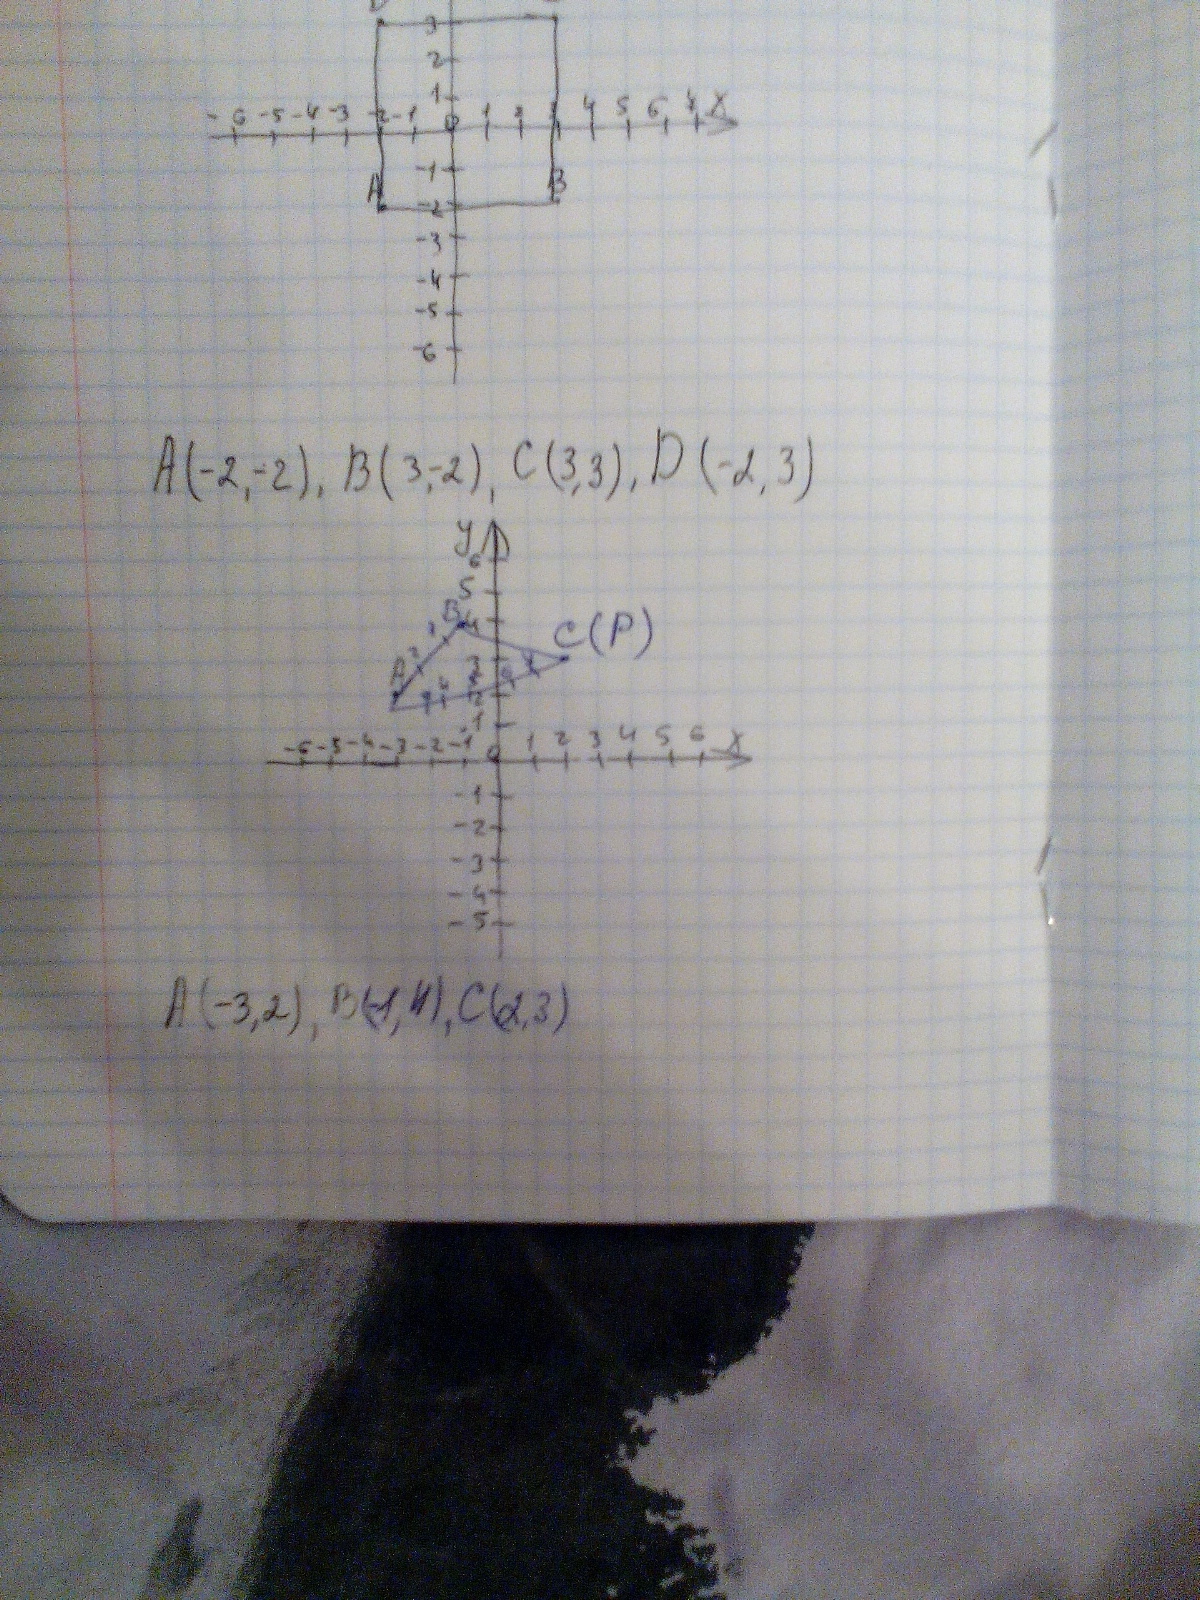 3
2
1
-6 -5 -4 -3 -2 -1 0 1 2 3 4 5 6 7 X
-1
A B
-2
-3
-4
-5
-6
A(-2,-2), B(3,-2), C(3,3), D(-2,3)
y
6
5
B 4 C(P)
A 3
2
1
-6 -5 -4 -3 -2 -1 0 1 2 3 4 5 6 X
-1
-2
-3
-4
-5
A(-3,2), B(-1,4), C(2,3)